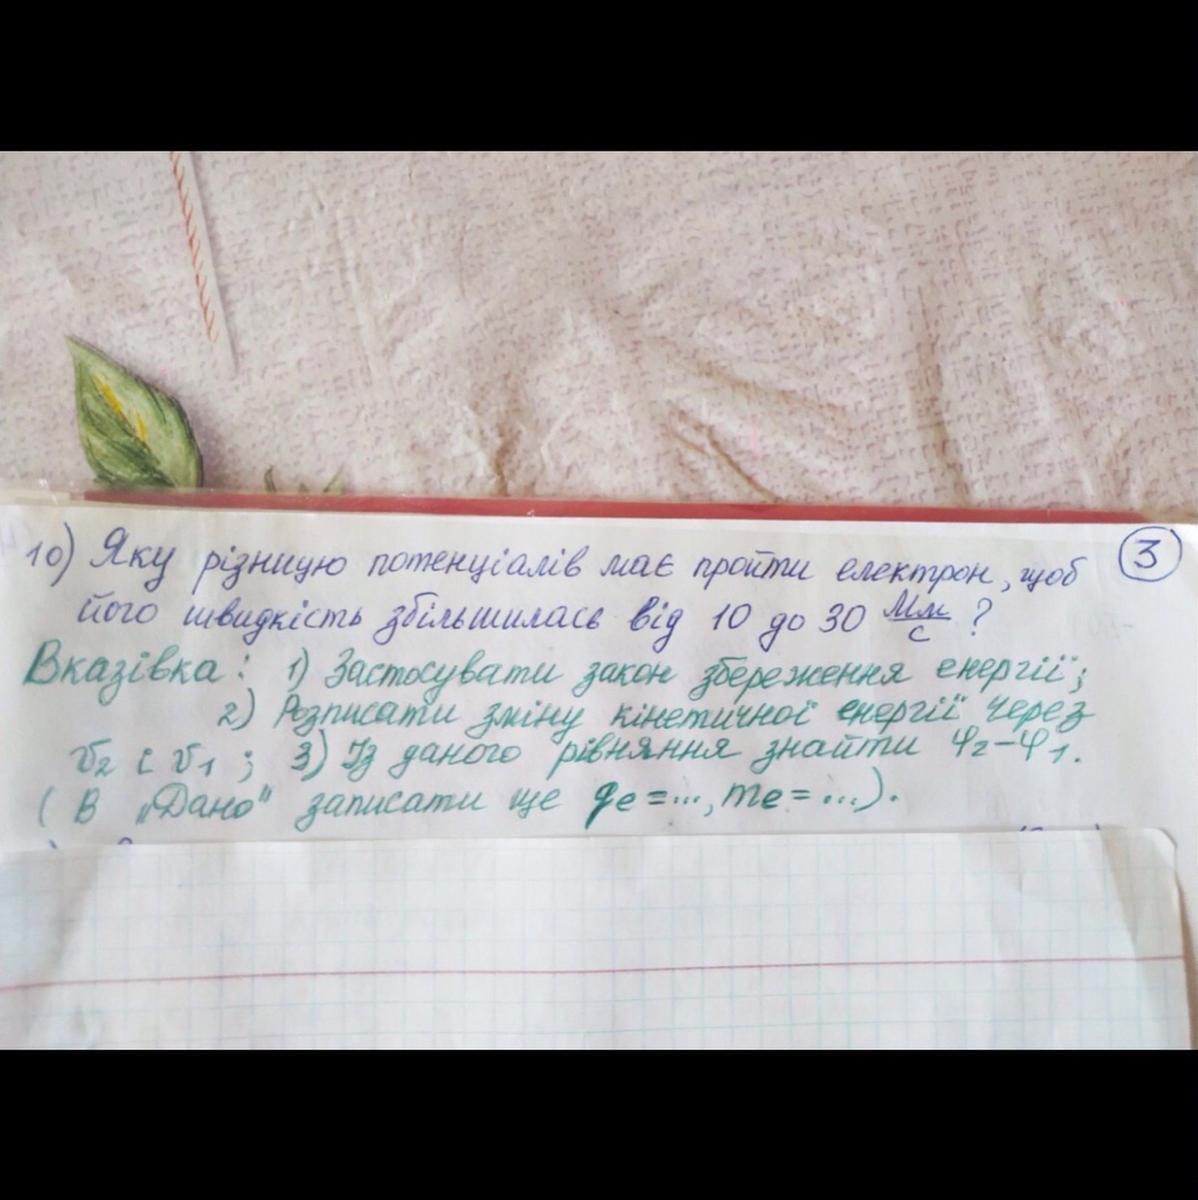 10) Яку різницю потенціалів має пройти електрон, щоб
3
його швидкість збільшилась від 10 до 30 Мм/с ?
Вказівка: 1) Застосувати закон збереження енергії;
2) Розписати зміну кінетичної енергії через
v2 і v1 ; 3) Із даного рівняння знайти φ2-φ1.
( В „Дано" записати ще qe=..., me=...).